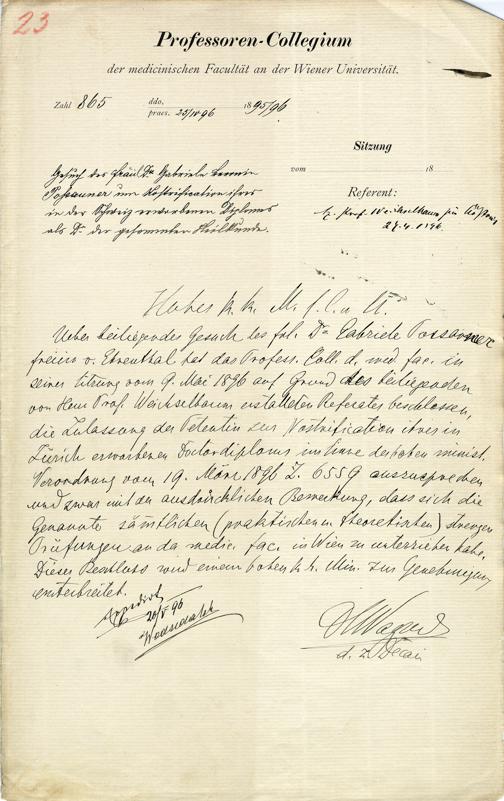 23
Professoren-Collegium
der medicinischen Facultät an der Wiener Universität.
Zahl 865 ddo. praes. 23/IV 96 1895/96
Sitzung
vom 18
Gesuch des Fräul. Dr. Gabriele Baronin
Possanner um Nostrification ihres
in der Schweiz erworbenen Diploms
als Dr. der gesammten Heilkunde.
Referent:
H. Prof. Weichselbaum zur
27.4.1896
Hohes k. k. M. f. C. u. U.
Ueber beiliegendes Gesuch des frl. Dr Gabriele Possanner
freiin v. Ehrenthal hat das Profess. Coll. d. med. fac. in
seiner Sitzung vom 9. Mai 1896 auf Grund des beiliegenden
von Herrn Prof. Weichselbaum erstatteten Referates beschlossen,
die Zulassung der Petentin zur Nostrification ihres in
Zürich erworbenen Doctordiploms im Sinne der hohen minist.
Verordnung vom 19. März 1896 Z. 6559 auszusprechen
und zwar mit der ausdrücklichen Bemerkung, dass sich die
Genannte sämtlichen (praktischen u. theoretischen) strengen
Prüfungen an der medic. fac. in Wien zu unterziehen habe.
Dieser Beschluss wird einem hohen k. k. Min. zur Genehmigung
unterbreitet.
Expedirt
20/V 96
Wagner
d. z. Decan